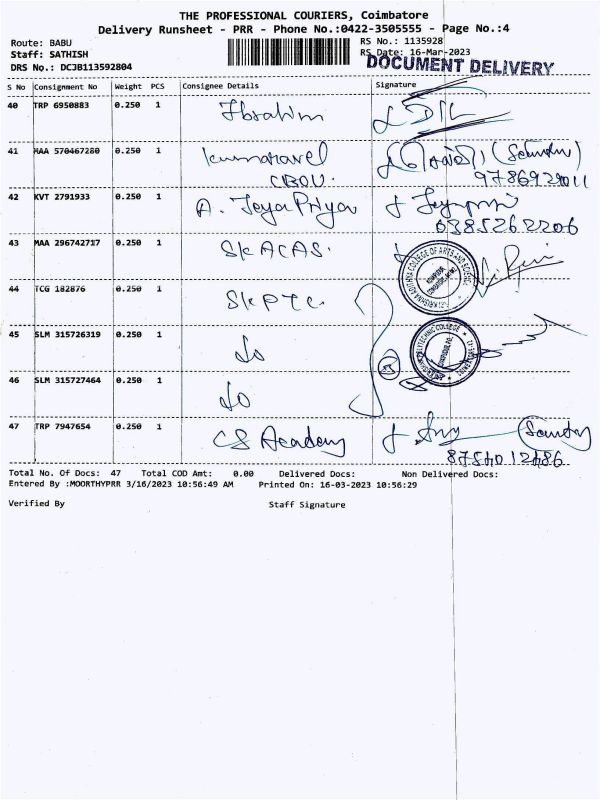 THE PROFESSIONAL COURIERS, Coimbatore
Delivery Runsheet - PRR - Phone No.:0422-3505555 - Page No.:4
Route: BABU RS No.: 1135928
Staff: SATHISH RS Date: 16-Mar-2023
DRS No.: DCJB113592804 DOCUMENT DELIVERY
S No Consignment No Weight PCS Consignee Details Signature
40 TRP 6950883 0.250 1 Ibrahim
41 MAA 570467280 0.250 1 kumaravel
CBOU. 9786929011
42 KVT 2791933 0.250 1 A. JeyaPriya
43 MAA 296742717 0.250 1 SKACAS.
44 TCG 182876 0.250 1 SKPTC.
45 SLM 315726319 0.250 1 do
46 SLM 315727464 0.250 1 do
47 TRP 7947654 0.250 1 CS Academy
Total No. Of Docs: 47 Total COD Amt: 0.00 Delivered Docs: Non Delivered Docs:
Entered By :MOORTHYPRR 3/16/2023 10:56:49 AM Printed On: 16-03-2023 10:56:29
Verified By Staff Signature